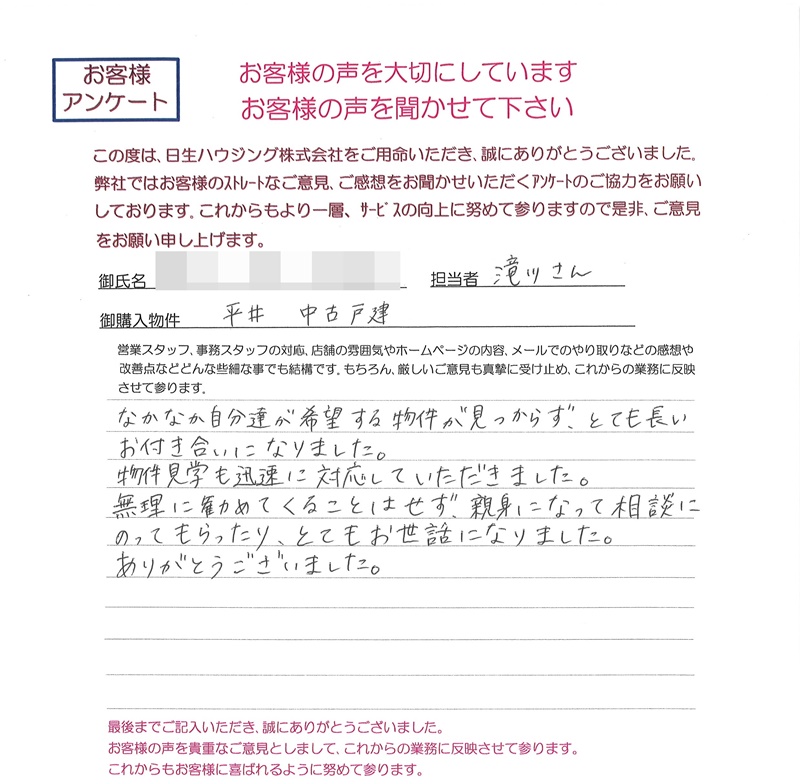 お客様
アンケート
お客様の声を大切にしています
お客様の声を聞かせて下さい
この度は、日生ハウジング株式会社をご用命いただき、誠にありがとうございました。
弊社ではお客様のストレートなご意見、ご感想をお聞かせいただくアンケートのご協力をお願い
しております。これからもより一層、サービスの向上に努めて参りますので是非、ご意見
をお願い申し上げます。
御氏名
担当者 滝川さん
御購入物件 平井 中古戸建
営業スタッフ、事務スタッフの対応、店舗の雰囲気やホームページの内容、メールでのやり取りなどの感想や
改善点などどんな些細な事でも結構です。もちろん、厳しいご意見も真摯に受け止め、これからの業務に反映
させて参ります。
なかなか自分達が希望する物件が見つからず、とても長い
お付き合いになりました。
物件見学も迅速に対応していただきました。
無理に勧めてくることはせず、親身になって相談に
のってもらったり、とてもお世話になりました。
ありがとうございました。
最後までご記入いただき、誠にありがとうございました。
お客様の声を貴重なご意見としまして、これからの業務に反映させて参ります。
これからもお客様に喜ばれるように努めて参ります。